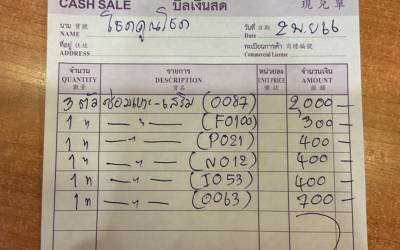 CASH SALE บิลเงินสด 現兑單
นาม 寶號 โชคคูณโชค วันที่ 日期 2 เม.ย 66
NAME Date
ที่อยู่ 住址 ทะเบียนการค้า 商標編號
ADDRESS Commercial License
จำนวน รายการ หน่วยละ จำนวนเงิน
QUANTITY DESCRIPTION UNIT PRICE AMOUNT
數量 貨名 單價 銀碼
3 ตัว ซ่อมเบาะ-เสริม (0087) 2,000 —
1 " — " — (F0100) 300 —
1 " — " — (P021) 400 —
1 " — " — (N012) 400 —
1 " — " — (I053) 400 —
1 " — " — (0063) 700 —